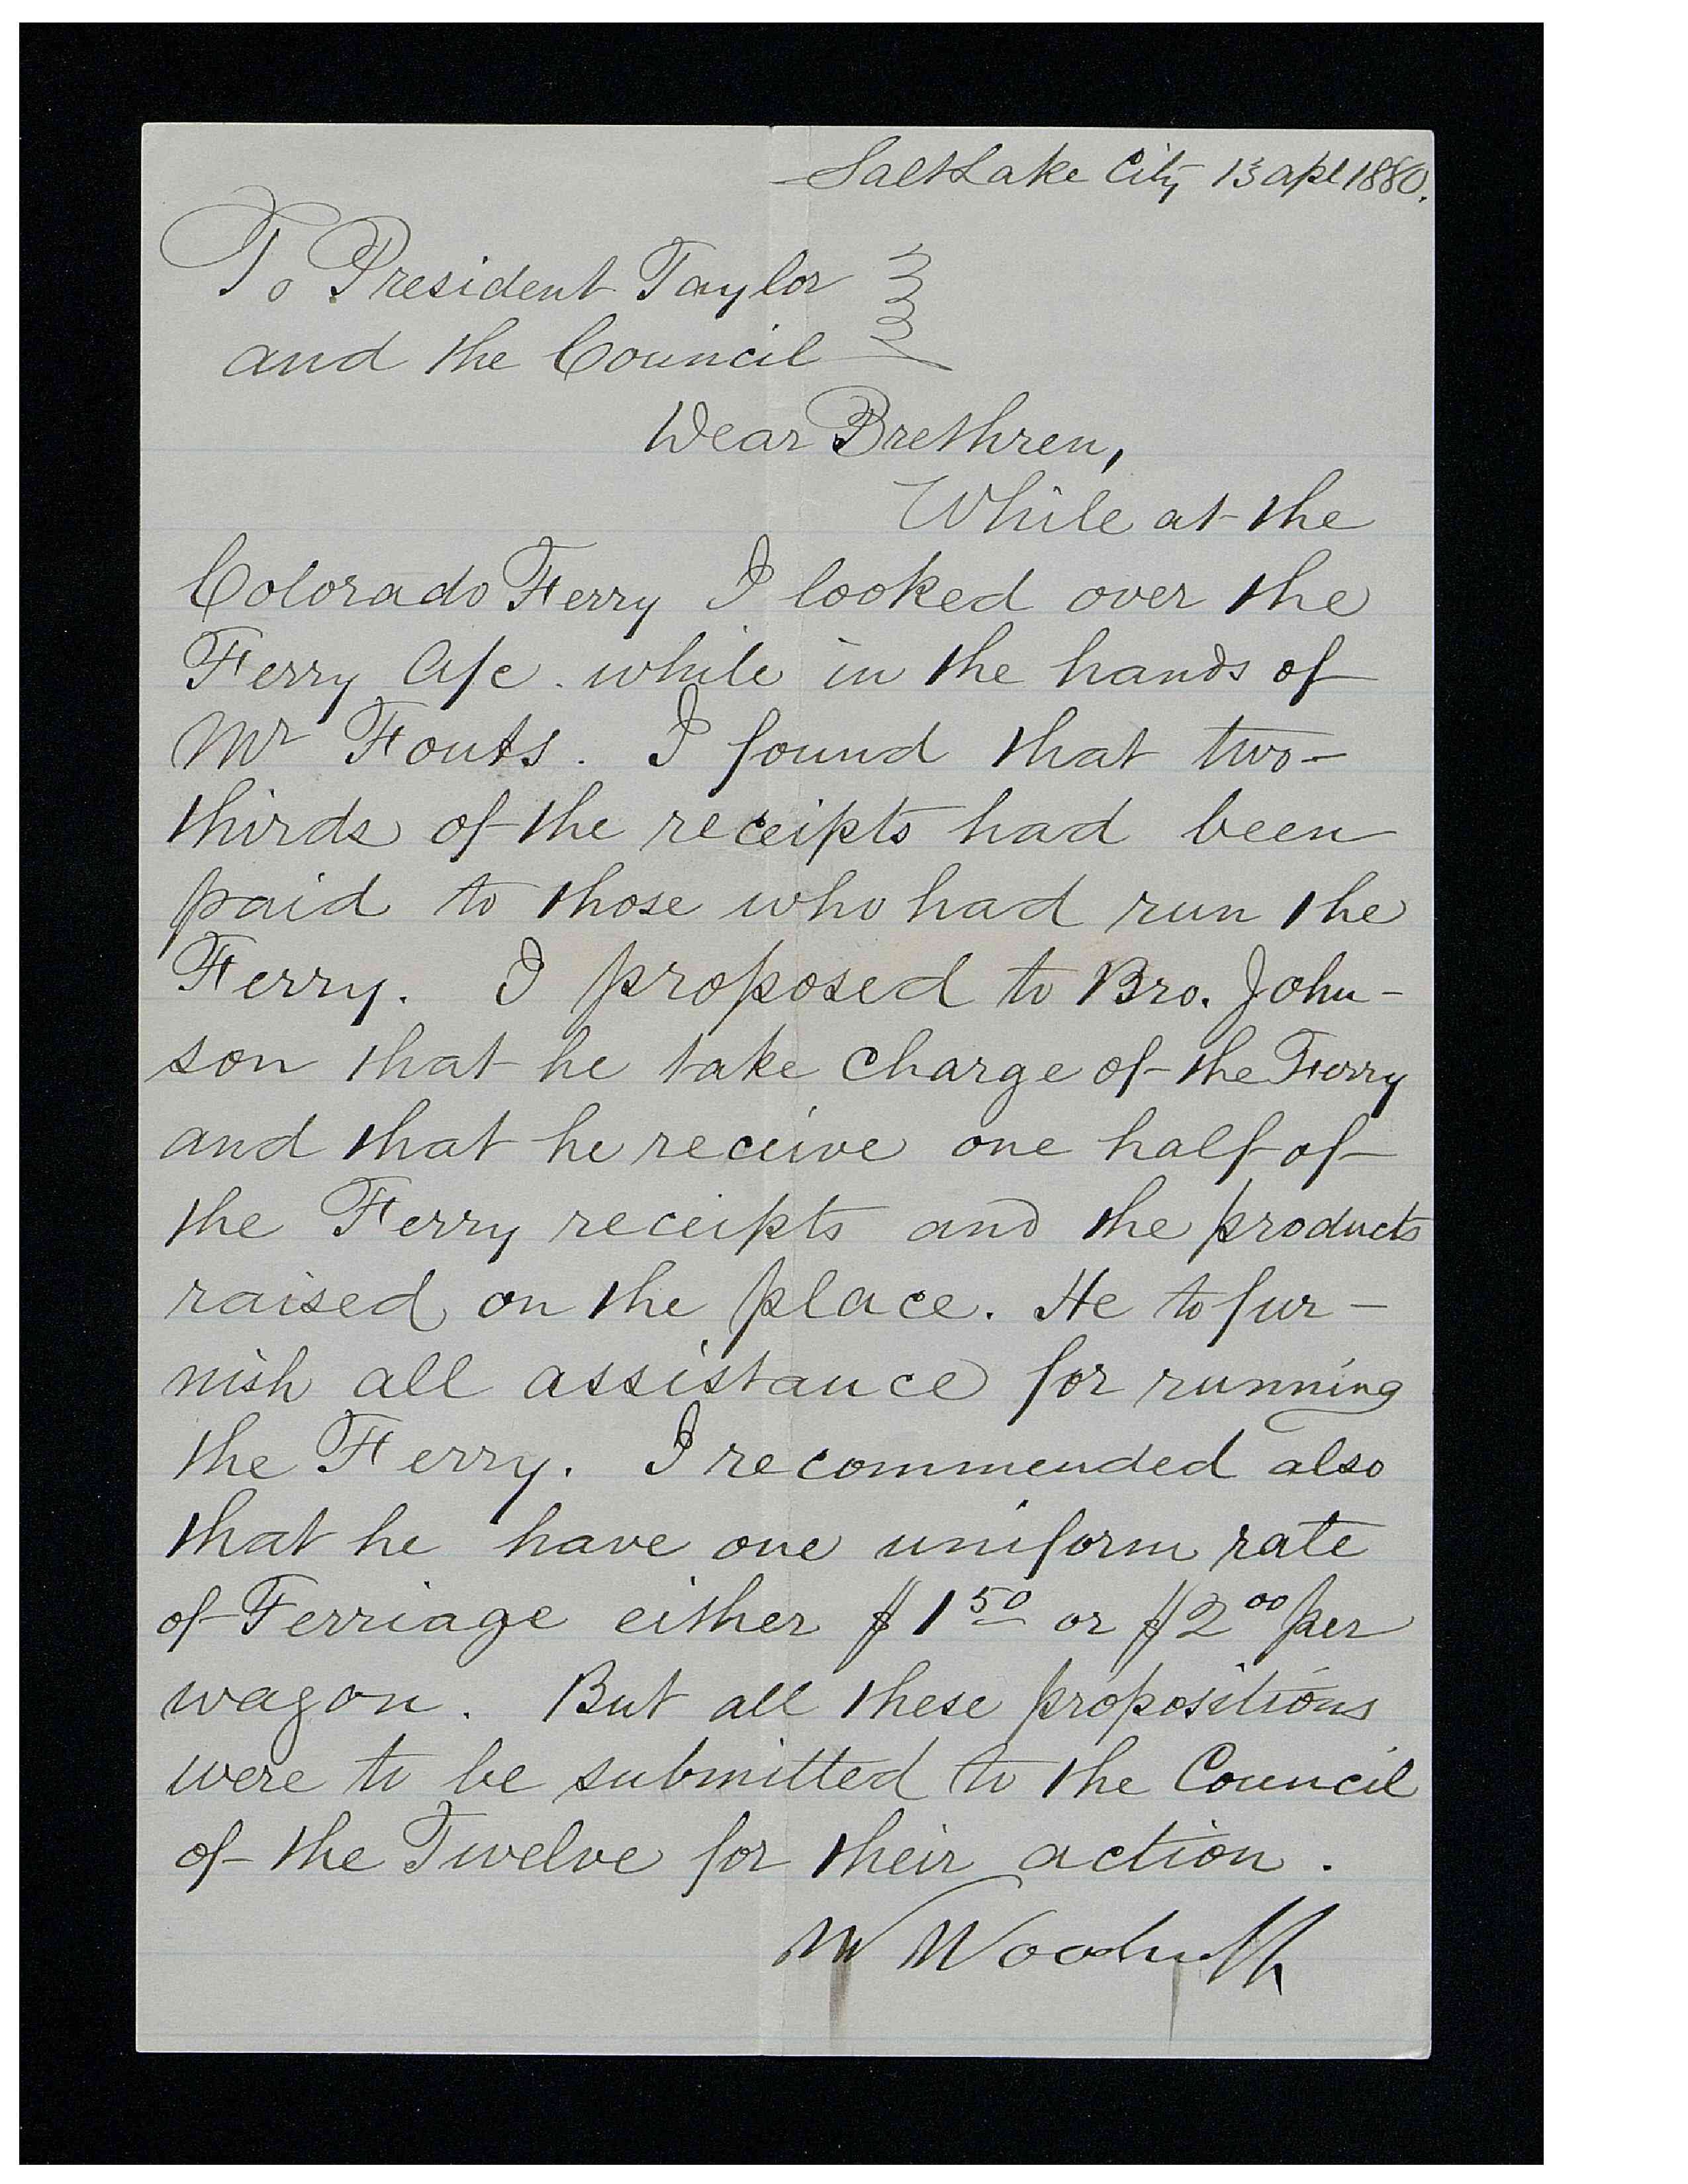 Salt Lake City 13 apl 1880.
To President Taylor
and the Council
Dear Brethren,
While at the
Colorado Ferry I looked over the
Ferry A/c. while in the hands of
Mr Fouts. I found that two-
thirds of the receipts had been
paid to those who had run the
Ferry. I proposed to Bro. John-
son that he take charge of the Ferry
and that he receive one half of
the Ferry receipts and the products
raised on the place. He to fur-
nish all assistance for running
the Ferry. I recommended also
that he have one uniform rate
of Ferriage either $1 50 or $2 00 per
wagon. But all these propositions
were to be submitted to the Council
of the Twelve for their action.
W Woodruff